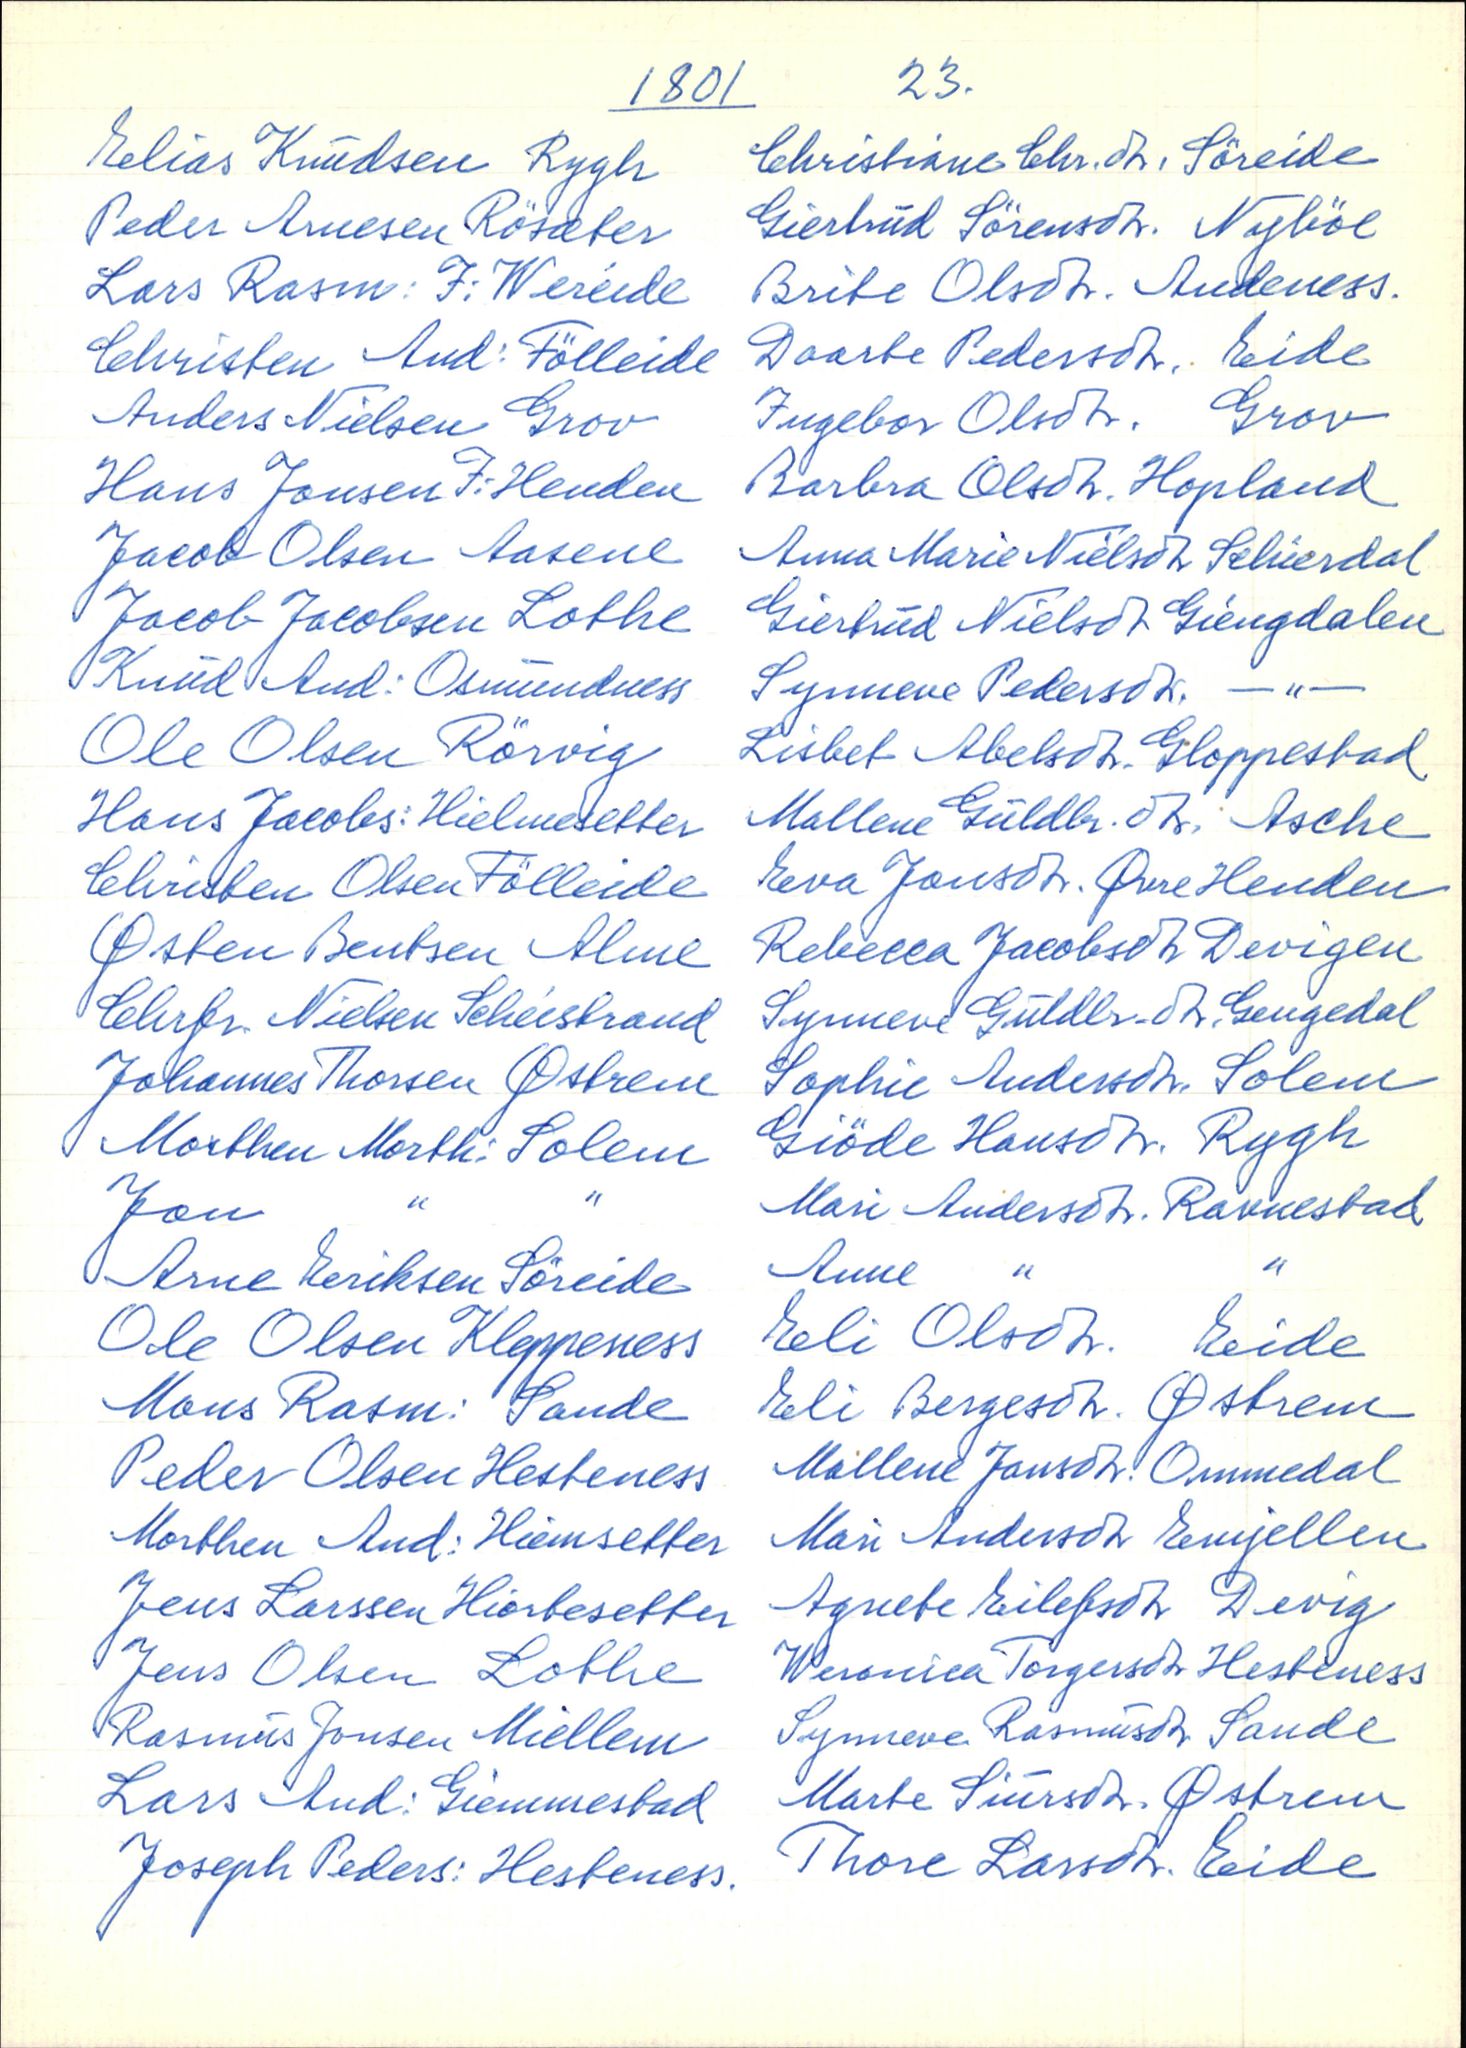 1801 23.
Elias Knudsen Rygh Christiane Chr. dtr. Söreide
Peder Arnesen Rösæter Giertrud Sörensdtr. Nyböe
Lars Rasm: F: Wereide Brite Olsdtr. Andeness.
Christen And: Fölleide Daarte Pedersdtr. Eide
Anders Nielsen Grov Ingebor Olsdtr. Grov
Hans Jonsen F: Henden Barbra Olsdtr. Hopland
Jacob Olsen Aasene Anna Marie Nielsdtr Schierdal
Jacob Jacobsen Lothe Giertrud Nielsdtr Giengdalen
Knud And: Osmundness Synneve Pedersdtr. —"—
Ole Olsen Rörvig Lisbet Abelsdtr. Gloppestad
Hans Jacobs: Hielmesetter Mallene Guldbr. dtr. Asche
Christen Olsen Fölleide Eva Jonsdtr. Øvre Henden
Østen Bentsen Alme Rebecca Jacobsdtr Devigen
Chrfr. Nielsen Scheistrand Synneve Guldbr. dtr. Gengedal
Johannes Thorsen Østrem Sophie Andersdtr. Solem
Morthen Morth: Solem Giöde Hansdtr. Rygh
Jon " " Mari Andersdtr. Ravnestad
Arne Eeriksen Söreide Anne " "
Ole Olsen Kleppeness Eli Olsdtr. Eide
Mons Rasm: Sande Eli Bergesdtr. Østrem
Peder Olsen Hesteness Mallene Jansdtr. Ommedal
Morthen And: Hiemsetter Mari Andersdtr Emjellen
Jens Larssen Hiortesetter Agnete Eilefsdtr Devig
Jens Olsen Lothe Weronica Torgersdtr Hesteness
Rasmus Jonsen Miellem Synneve Rasmusdtr Sande
Lars And: Giemmestad Marte Siursdtr. Østrem
Joseph Peders: Hesteness. Thore Larsdtr. Eide